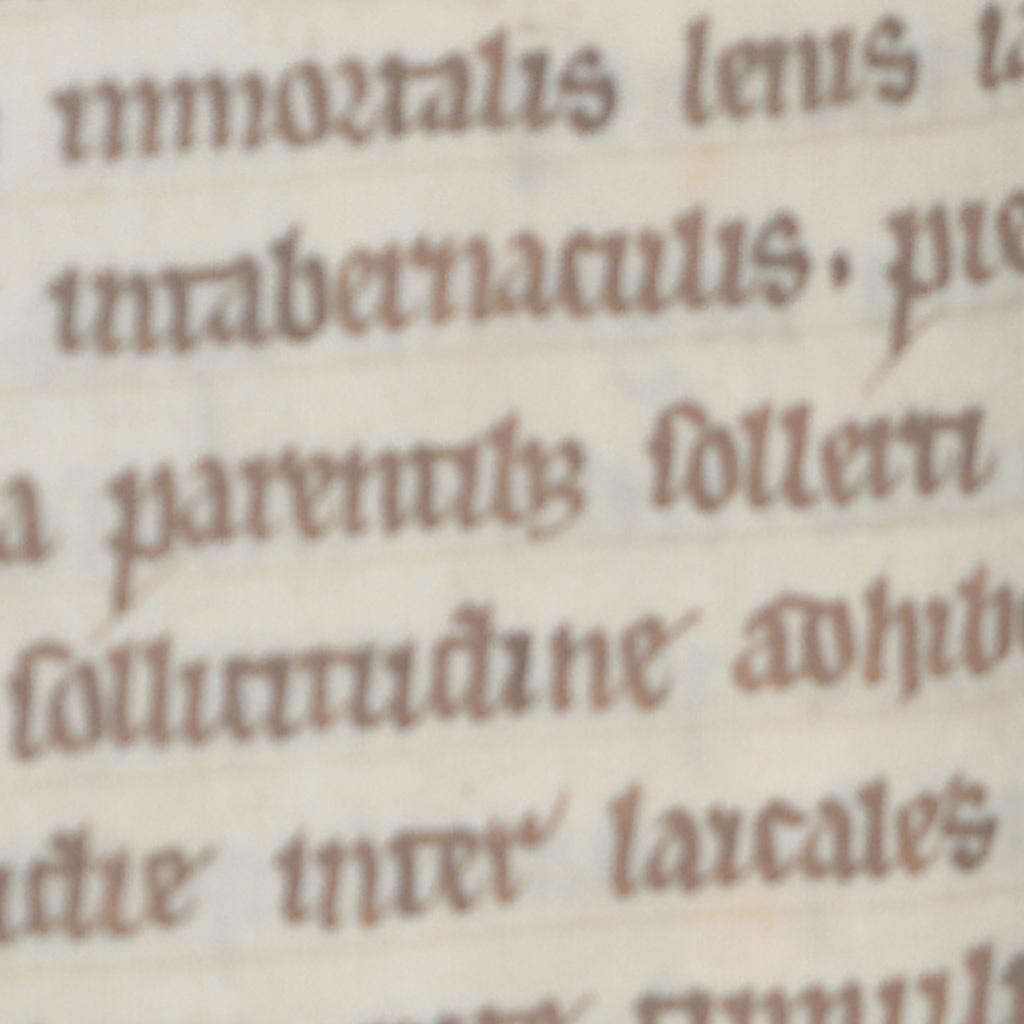 inmortalis lenis
intabernaculis. pre
a parentibꝫ solleti
sollicitudine adhibe
udie inter laicales